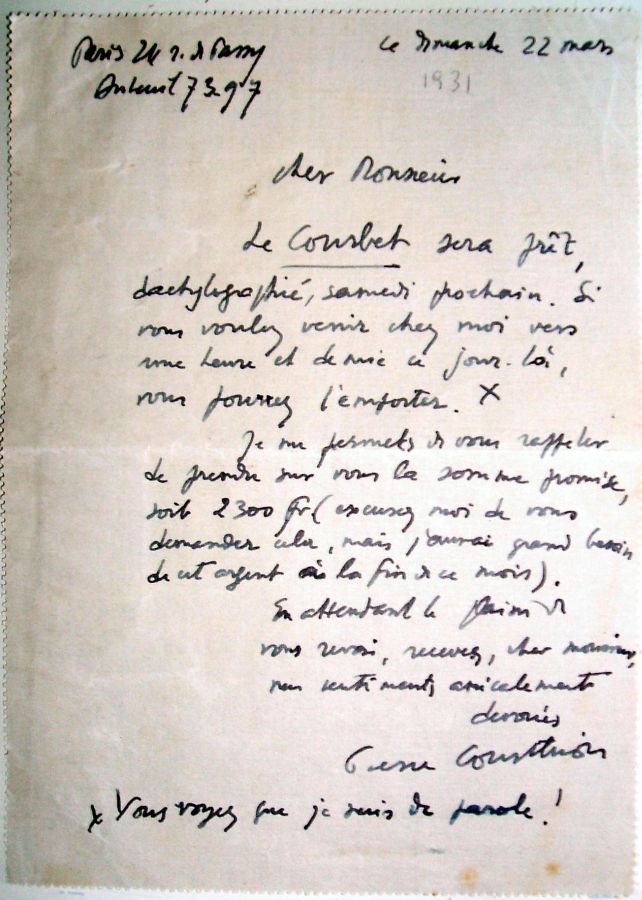 Paris 24 r. de Passy
Auteuil 73-97
Ce dimanche 22 mars
1931
Cher Monsieur
Le Courbet sera prêt,
dactylographié, samedi prochain. Si
vous voulez venir chez moi vers
une heure et demie ce jour-là,
vous pourrez l'emporter. X
Je me permets de vous rappeler
de prendre sur vous la somme promise,
soit 2300 fr (excusez moi de vous
demander cela, mais j'aurai grand besoin
de cet argent à la fin de ce mois).
En attendant le plaisir de
vous revoir, recevez, cher monsieur,
mes sentiments amicalement
dévoués
Pierre Courthion
x Vous voyez que je suis de parole !